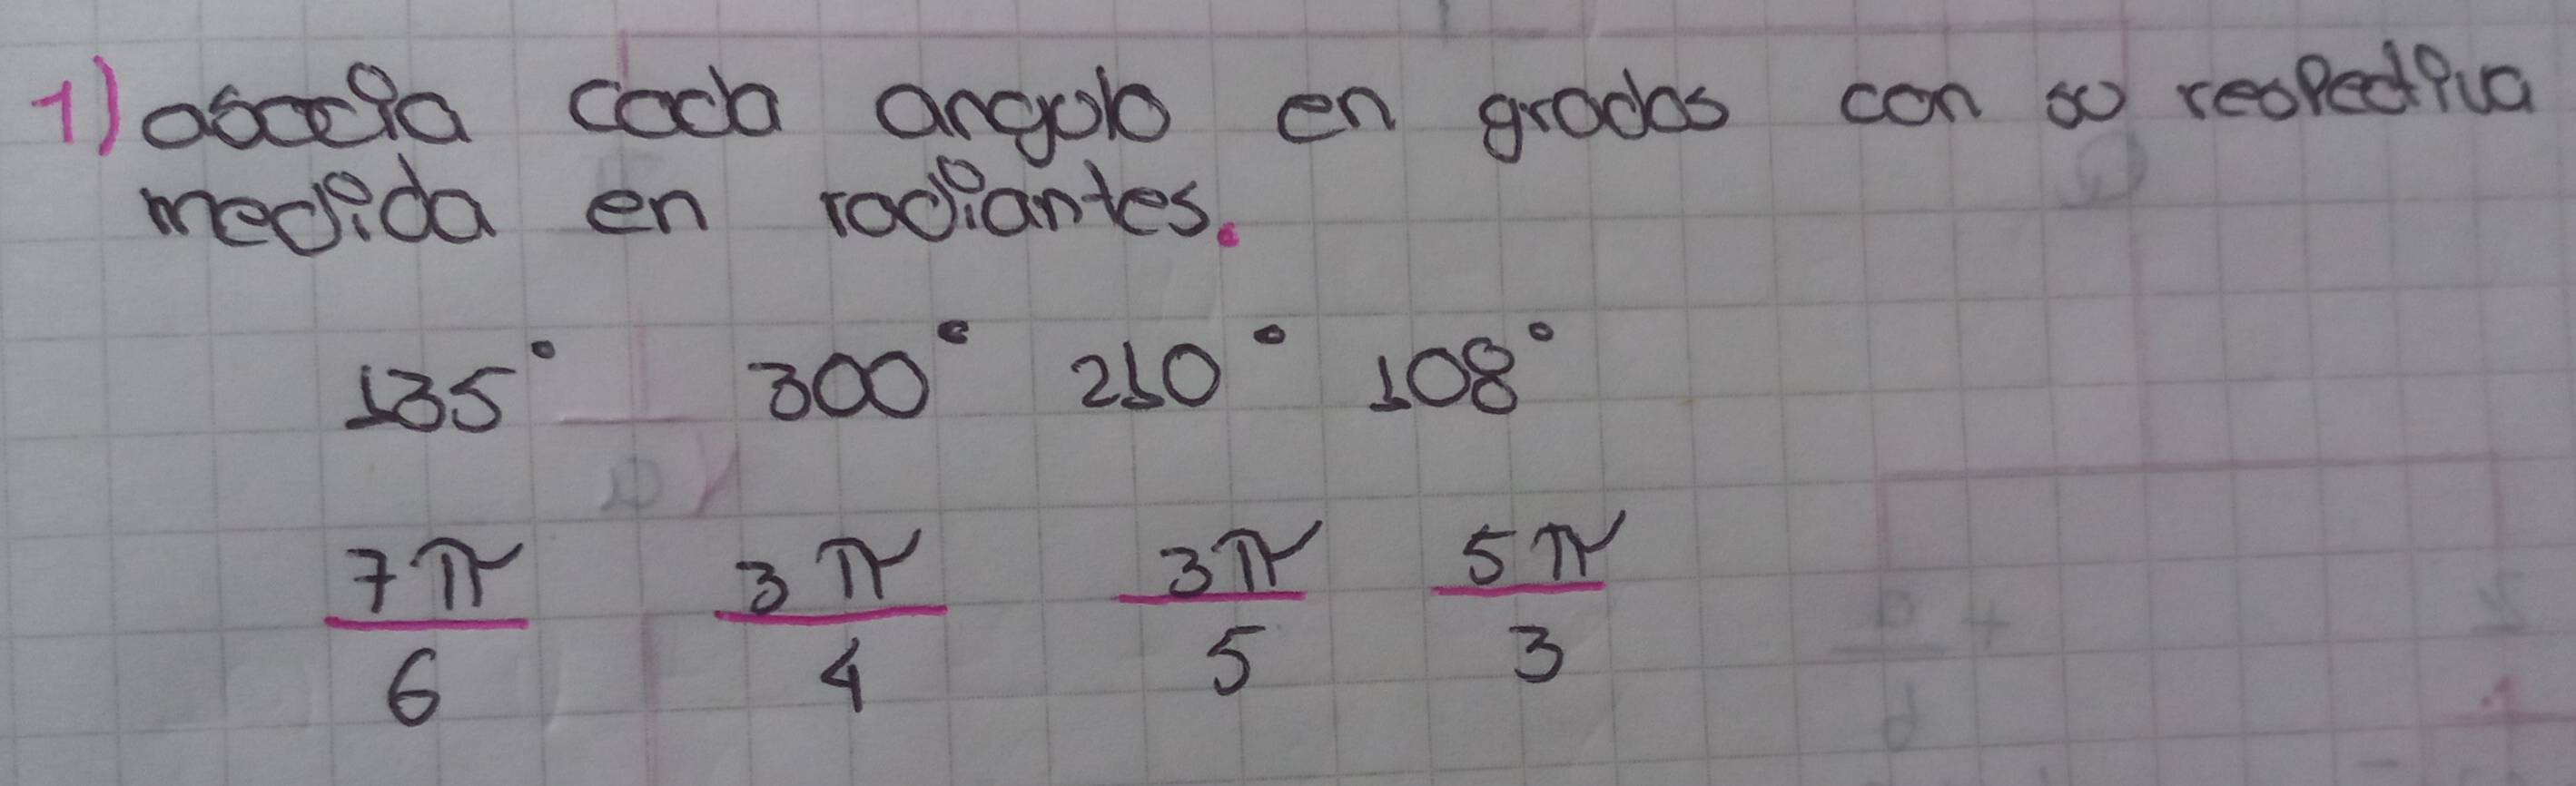 1) asocia cada angulo en grados con su respectiva
medida en radiantes.
135° 300° 210° 108°
7π/6 3π/4 3π/5 5π/3